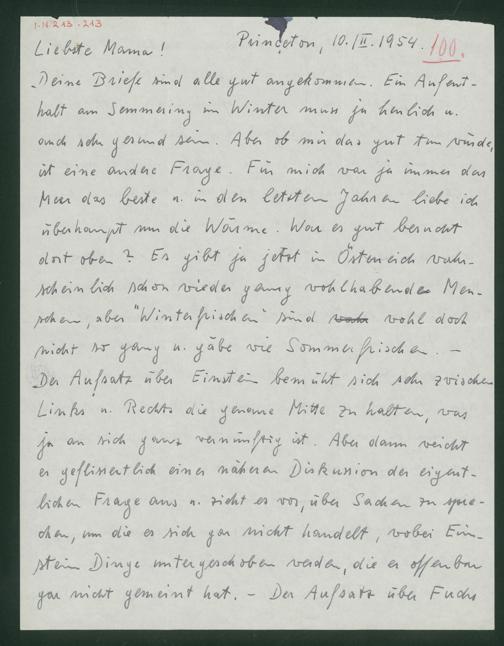 1.H.213 - 213
Princeton, 10./II. 1954.
100.
Liebste Mama!
Deine Briefe sind alle gut angekommen. Ein Aufent-
halt am Semmering im Winter muss ja herrlich u.
auch sehr gesund sein. Aber ob mir das gut tun würde,
ist eine andere Frage. Für mich war ja immer das
Meer das beste u. in den letzten Jahren liebe ich
überhaupt nur die Wärme. War es gut besucht
dort oben? Es gibt ja jetzt in Österreich wahr-
scheinlich schon wieder ganz wohlhabende Men-
schen, aber "Winterfrischen" sind wohl doch
nicht so gang u. gäbe wie Sommerfrischen. –
Der Aufsatz über Einstein bemüht sich sehr zwischen
Links u. Rechts die genaue Mitte zu halten, was
ja an sich ganz vernünftig ist. Aber dann weicht
er geflissentlich einer näheren Diskussion der eigent-
lichen Frage aus u. zieht es vor, über Sachen zu spre-
chen, um die es sich gar nicht handelt, wobei Ein-
stein Dinge untergeschoben werden, die er offenbar
gar nicht gemeint hat. – Der Aufsatz über Fuchs